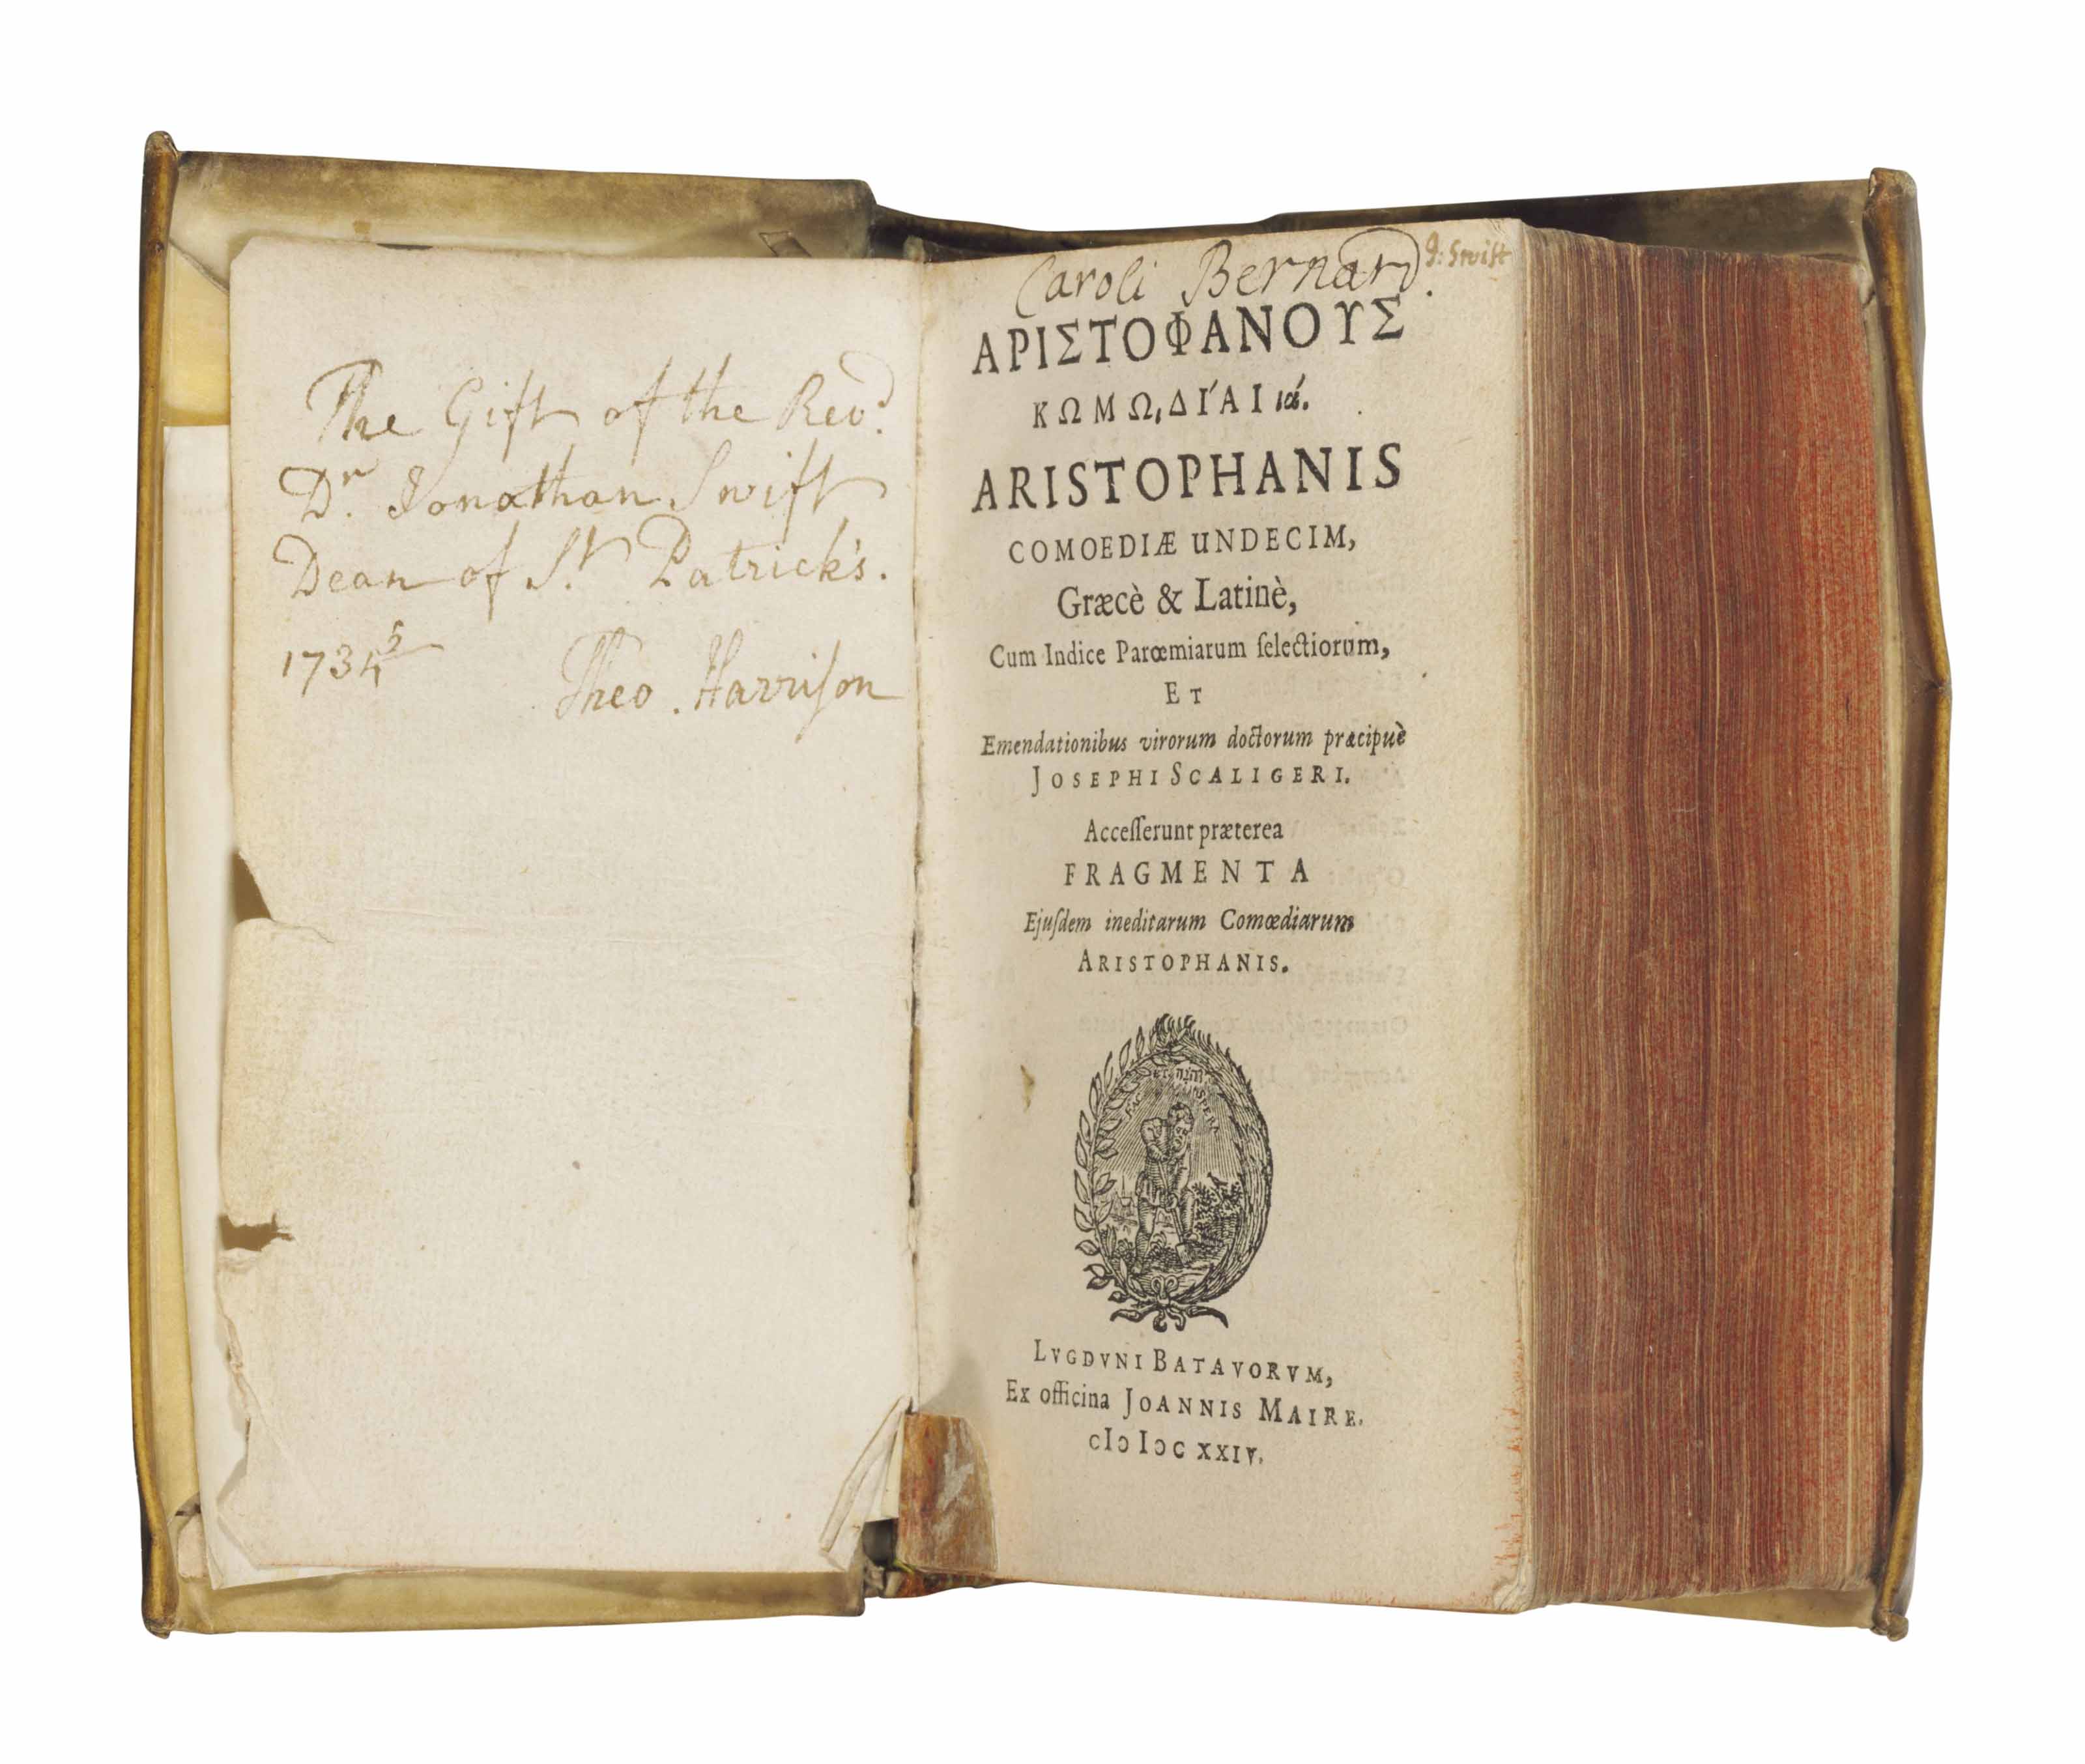 The Gift of the Revd.
Dr. Jonathan Swift
Dean of St. Patrick's.
1734/5
Theo. Harrison
Caroli Bernard.
J: Swift
ΑΡΙΣΤΟΦΑΝΟΥΣ
ΚΩΜΩͺΔΊΑΙ ιά.
ARISTOPHANIS
COMOEDIÆ UNDECIM,
Græcè & Latinè,
Cum Indice Parœmiarum ſelectiorum,
ET
Emendationibus virorum doctorum præcipuè
JOSEPHI SCALIGERI.
Acceſſerunt præterea
FRAGMENTA
Ejuſdem ineditarum Comœdiarum
ARISTOPHANIS.
FAC ET SPERA
LVGDVNI BATAVORVM,
Ex officina JOANNIS MAIRE.
cIɔ Iɔc XXIV.